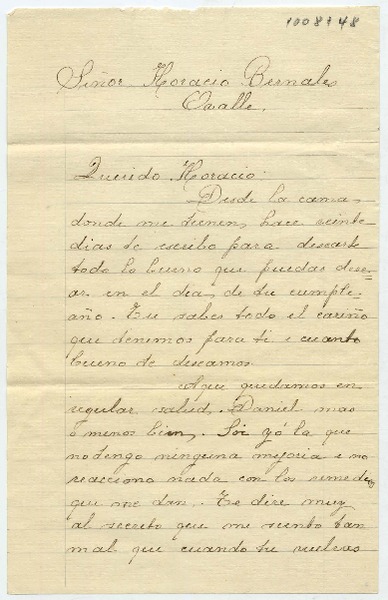 1008148
Señor Horacio Bernales
Ovalle.
Querido Horacio:
Desde la cama,
donde me tienen, hace veinte
dias te escribo para desearte
todo lo bueno que puedas dese-
ar en el dia, de tu cumple-
año. Tu sabes todo el cariño
que tenemos para ti i cuanto
bueno te deseamos.
Aqui quedamos en
regular salud. Daniel mas
o menos bien. Soi yó la que
no tengo ninguna mejoria i no
reacciono nada con los remedios
que me dan. Te dire muy
al secreto que me siento tan
mal que cuando tu vuelvas